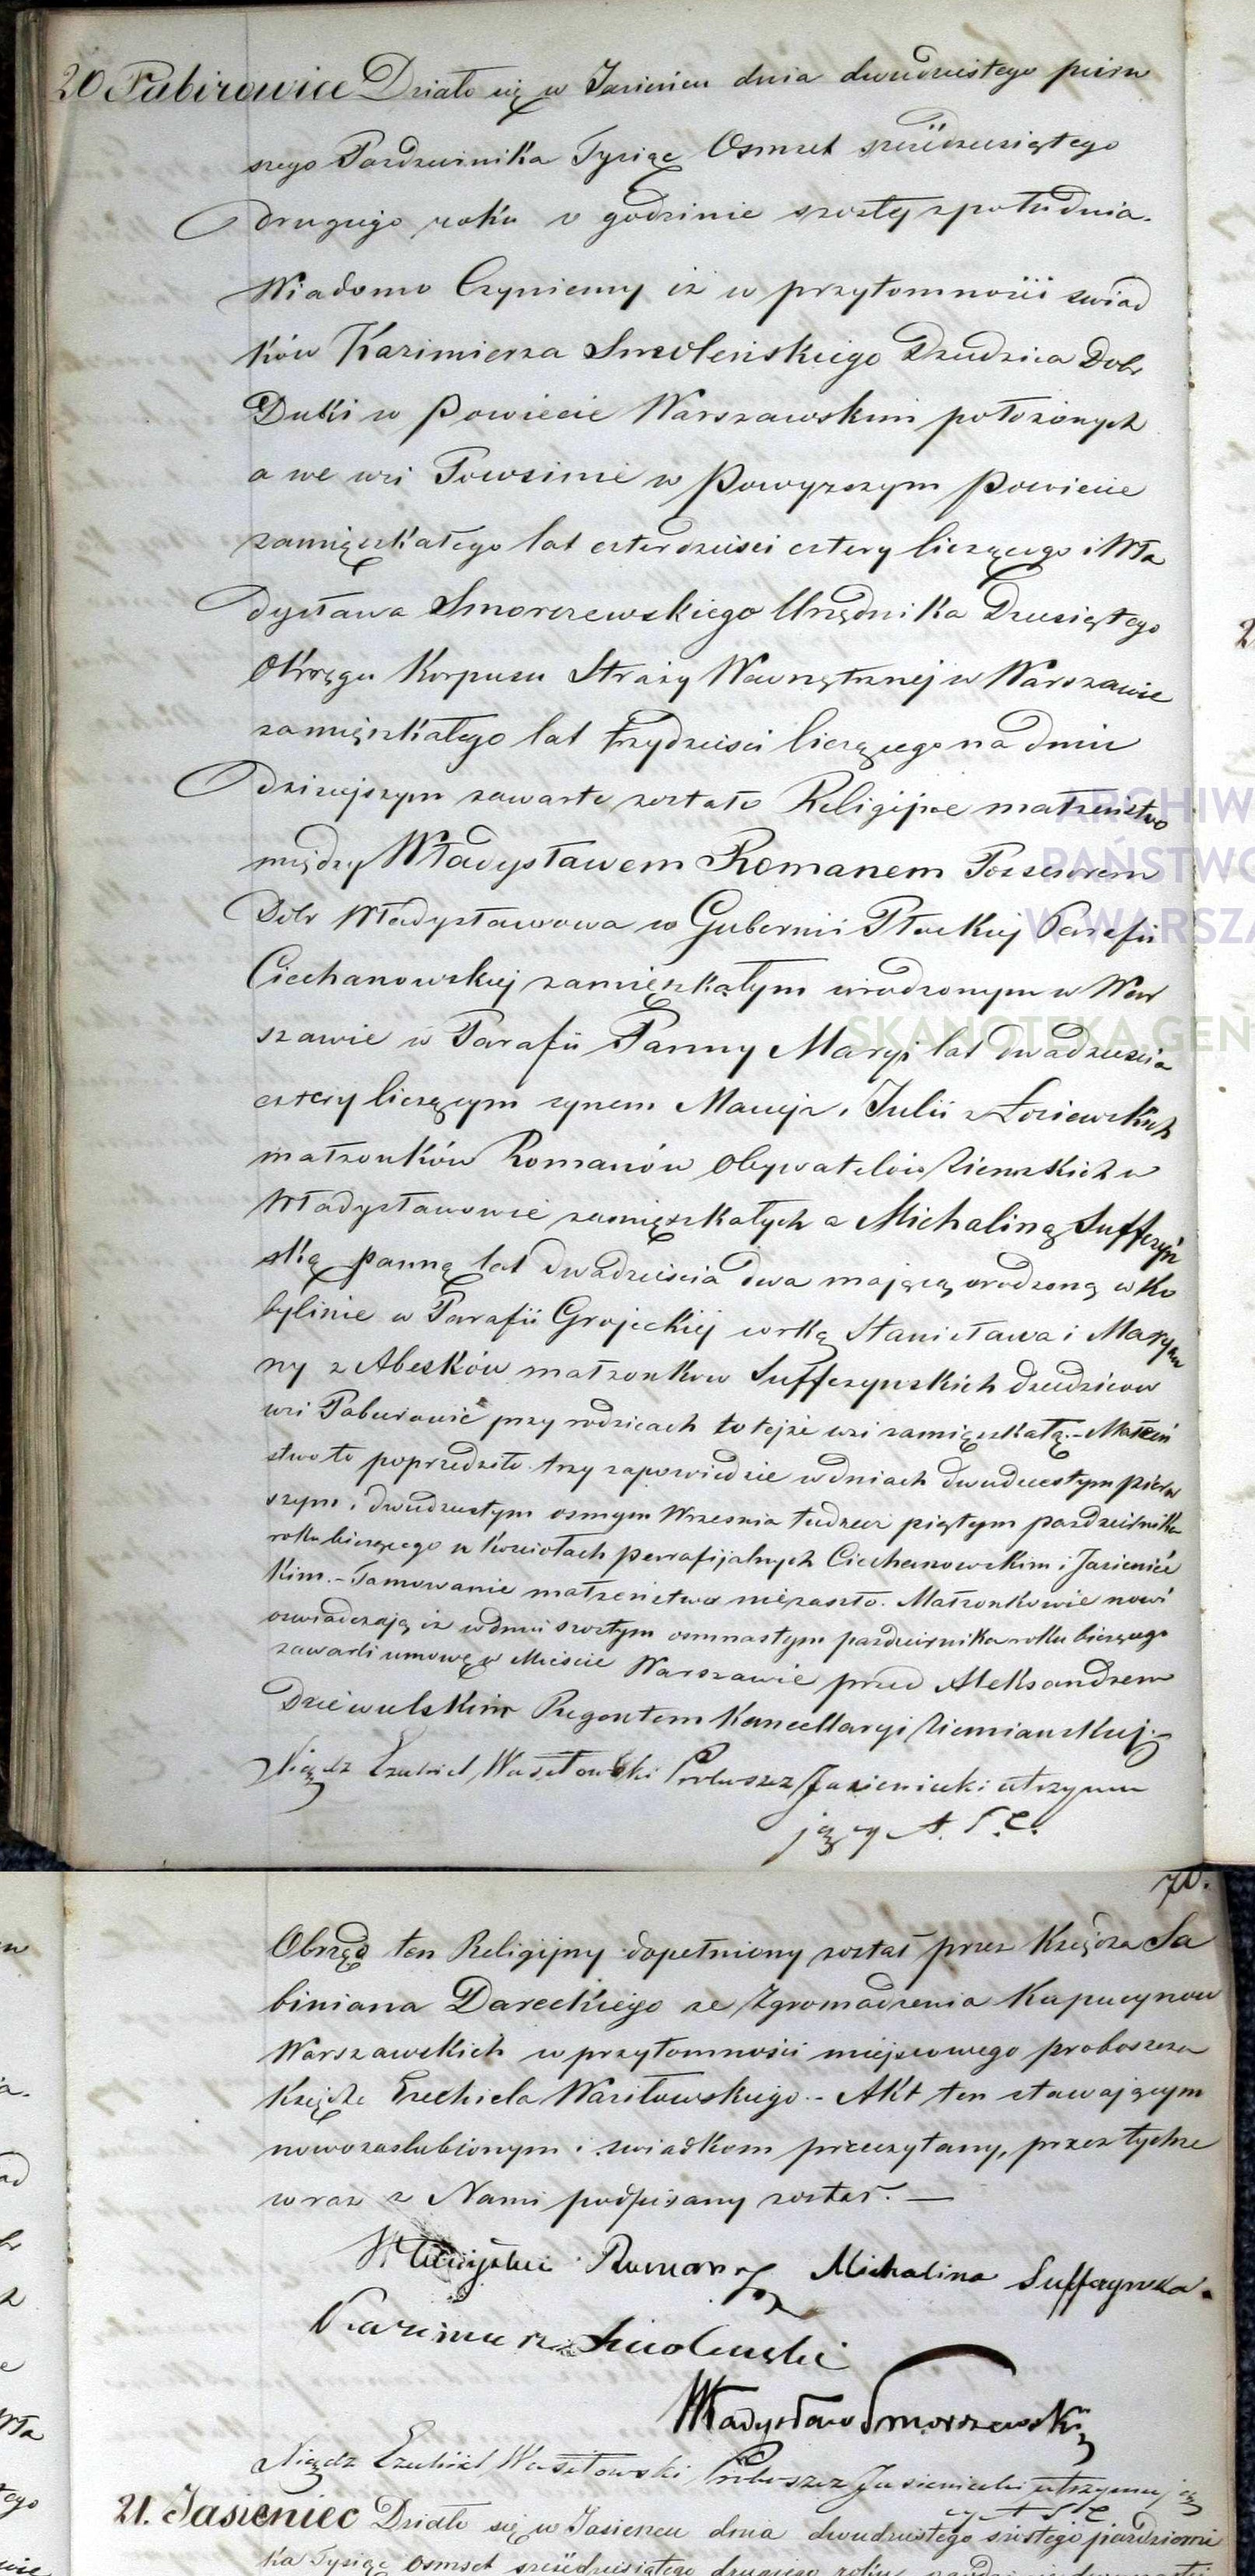 20 Pabirowice Działo się w Jasieńcu dnia dwudziestego pierw
szego Pazdziernika Tysiąc Osmset sześdziesiątego
drugiego roku o godzinie szostej z południa.
Wiadomo Czyniemy iż w przytomności świad
ków Kazimierza Smoleńskiego Dziedzica Dobr
w Powiecie Warszawskim położonych
a we wsi Powsinie w Powyższym Powiecie
zamięszkałego lat czterdzieści cztery liczącego i Wła
dysława Smorczewskiego Urzędnika Dziesiątego
Okręgu Korpusu Straży Wewnętrznej w Warszawie
zamięszkałego lat trzydzieści liczącego na dniu
dzisiejszym zawarte zostało Religijne małżeństwo
między Władysławem Romanem Possesorem
Dobr Władysławowa w Gubernii Płockiej Parafii
Ciechanowskiej zamięszkałym urodzonym w War
szawie w Parafii Panny Maryi lat dwadzieścia
cztery liczącym synem Macieja i Julii z Łosiewskich
małżonków Romanów Obywatelów Ziemskich w
Władysławowie zamięszkałych a Michaliną Suffczyń
ską panną lat dwadzieścia dwa mającą urodzoną w Ko
bylinie w Parafii Grojeckiej corką Stanisława i Maryan
ny z Abesków małżonkow Suffczynskich dziedzicow
wsi Paburowic przy rodzicach w tejże wsi zamięszkałą. – Małżeń
stwo to poprzedziło trzy zapowiedzie w dniach dwudziestym pierw
szym, dwudziestym osmym Wrzesnia tudzież piątym pazdziernika
roku bieżącego w Kościołach parafijalnych Ciechanowskim i Jasienieć
kim. – Tamowanie małżeństwa niezaszło. Małżonkowie nowi
oswiadczają iż w dniu szostym osmnastym pazdziernika roku bieżącego
zawarli umowę w Mieście Warszawie przed Aleksandrem
Dziewulskim Regentem Kancellaryi Ziemiańskiej. –
Xiądz Ezechiel Wasiłowski Proboszcz Jasieniecki utrzymu
jący A. S. C.
70.
Obrząd ten Religijny dopełniony został przez Księdza Sa
biniana Dareckiego ze Zgromadzenia Kapucynow
Warszawskich w przytomności miejscowego proboszcza
Księdza Ezechiela Wasiłowskiego. – Akt ten stawającym
nowozaslubionym i swiadkom przeczytany, przez tychże
wraz z Nami podpisany został. —
Władysław Roman Michalina Suffczynska.
Kazimierz Smoleński
Władysław Smorczewski
Xiądz Ezechiel Wasiłowski Proboszcz Jasieniecki utrzymują
cy A S C
21. Jasieniec Działo się w Jasieńcu dnia dwudziestego szóstego pazdzierni
ka Tysiąc Osmset sześdziesiątego drugiego roku